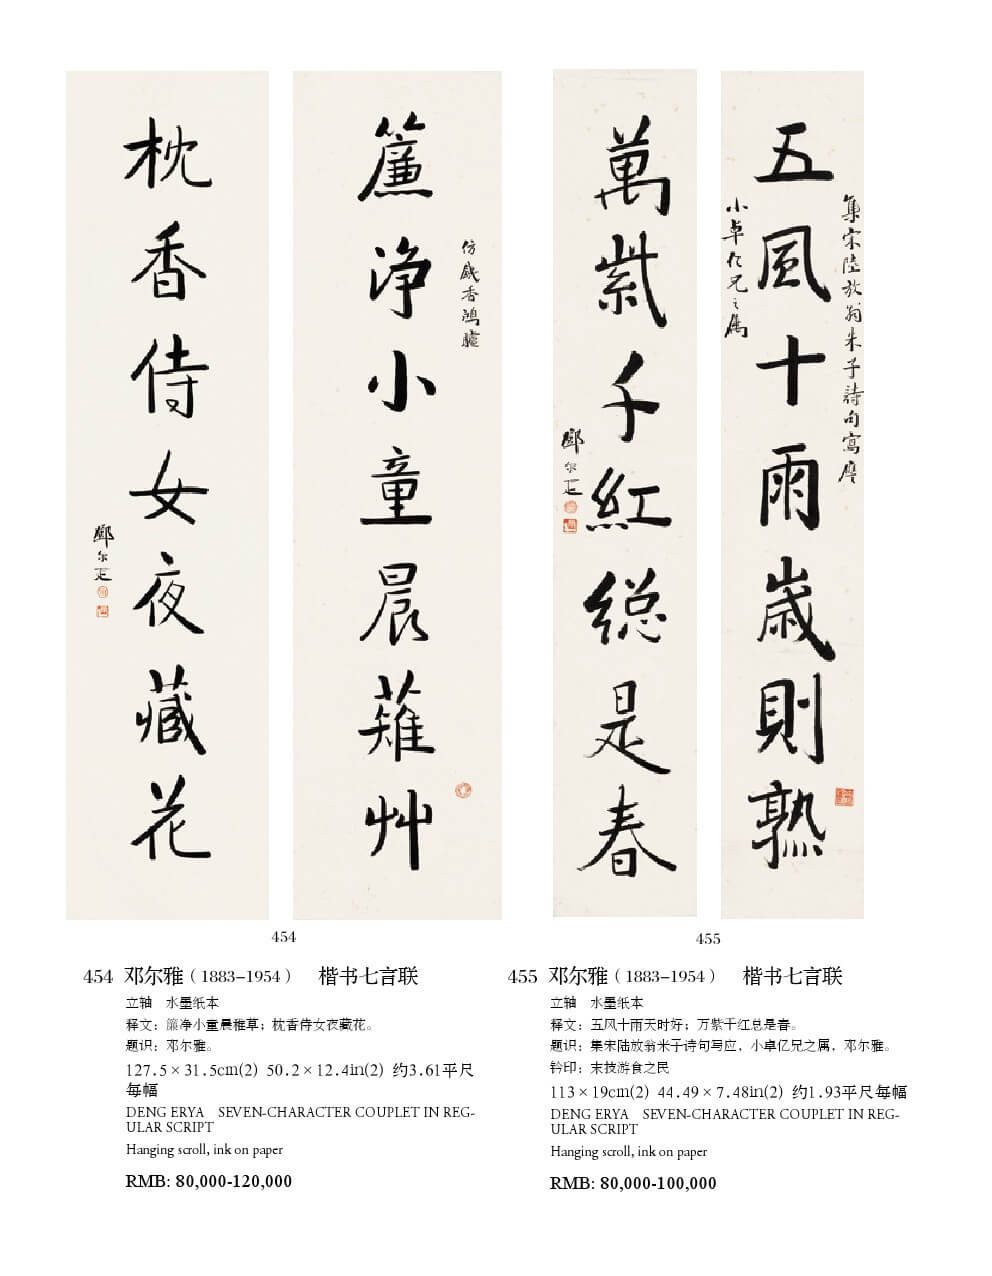 簾净小童晨薙艸
仿鐵香鴻臚
枕香侍女夜藏花
鄧尔疋
集宋陸放翁朱子詩句寫應
五風十雨歲則熟
小卓仁兄之屬
萬紫千紅総是春
鄧尔疋
454
455
454 邓尔雅（1883-1954） 楷书七言联
立轴 水墨纸本
释文：簾净小童晨稚草；枕香侍女夜藏花。
题识：邓尔雅。
127.5×31.5cm(2) 50.2×12.4in(2) 约3.61平尺
每幅
DENG ERYA SEVEN-CHARACTER COUPLET IN REG-
ULAR SCRIPT
Hanging scroll, ink on paper
RMB: 80,000-120,000
455 邓尔雅（1883-1954） 楷书七言联
立轴 水墨纸本
释文：五风十雨天时好；万紫千红总是春。
题识：集宋陆放翁米子诗句写应，小卓亿兄之属，邓尔雅。
钤印：末技游食之民
113×19cm(2) 44.49×7.48in(2) 约1.93平尺每幅
DENG ERYA SEVEN-CHARACTER COUPLET IN REG-
ULAR SCRIPT
Hanging scroll, ink on paper
RMB: 80,000-100,000